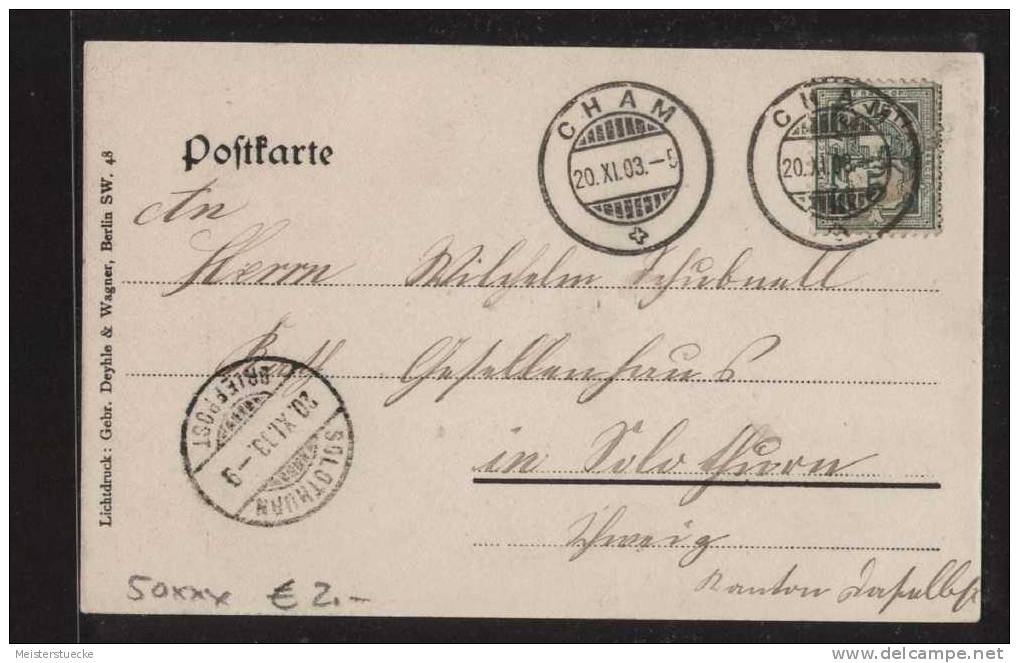 Postkarte
CHAM
20. XI. 03. – 5
CHAM
20. XI. 03
HELVETIA
An
Herrn Wilhelm Schubnell
Kath Gesellenhaus
in Solothurn
Schweiz
Kanton daselbst
BRIEFPOST
20. XI. 03. – 9
SOLOTHURN
Lichtdruck: Gebr. Deyhle & Wagner, Berlin SW. 48
50xxx € 2.-
Meisterstuecke
delcampe.net